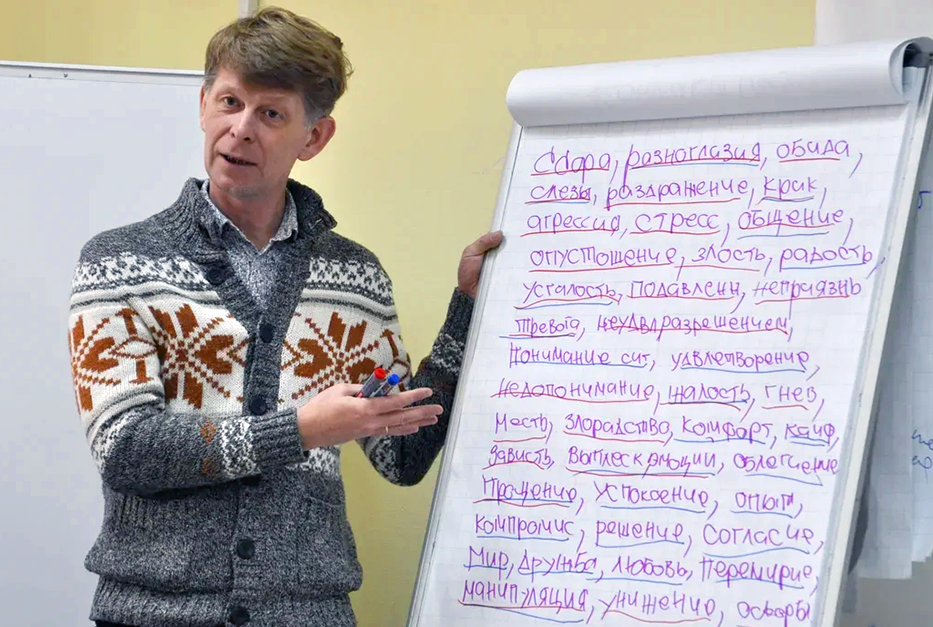 ссора, разногласия, обида,
слезы, раздражение, крик,
агрессия, стресс, общение,
опустошение, злость, радость,
усталость, подавленн, неприязнь
тревога, неудвл разрешением,
понимание сит, удвлетворение,
недопонимание, жалость, гнев,
месть, злорадство, комфорт, кайф,
зависть, выплеск эмоции, облегчение
прощение, успокоение, опыт,
компромис, решение, согласие,
мир, дружба, любовь, перемирие,
манипуляция, унижение,